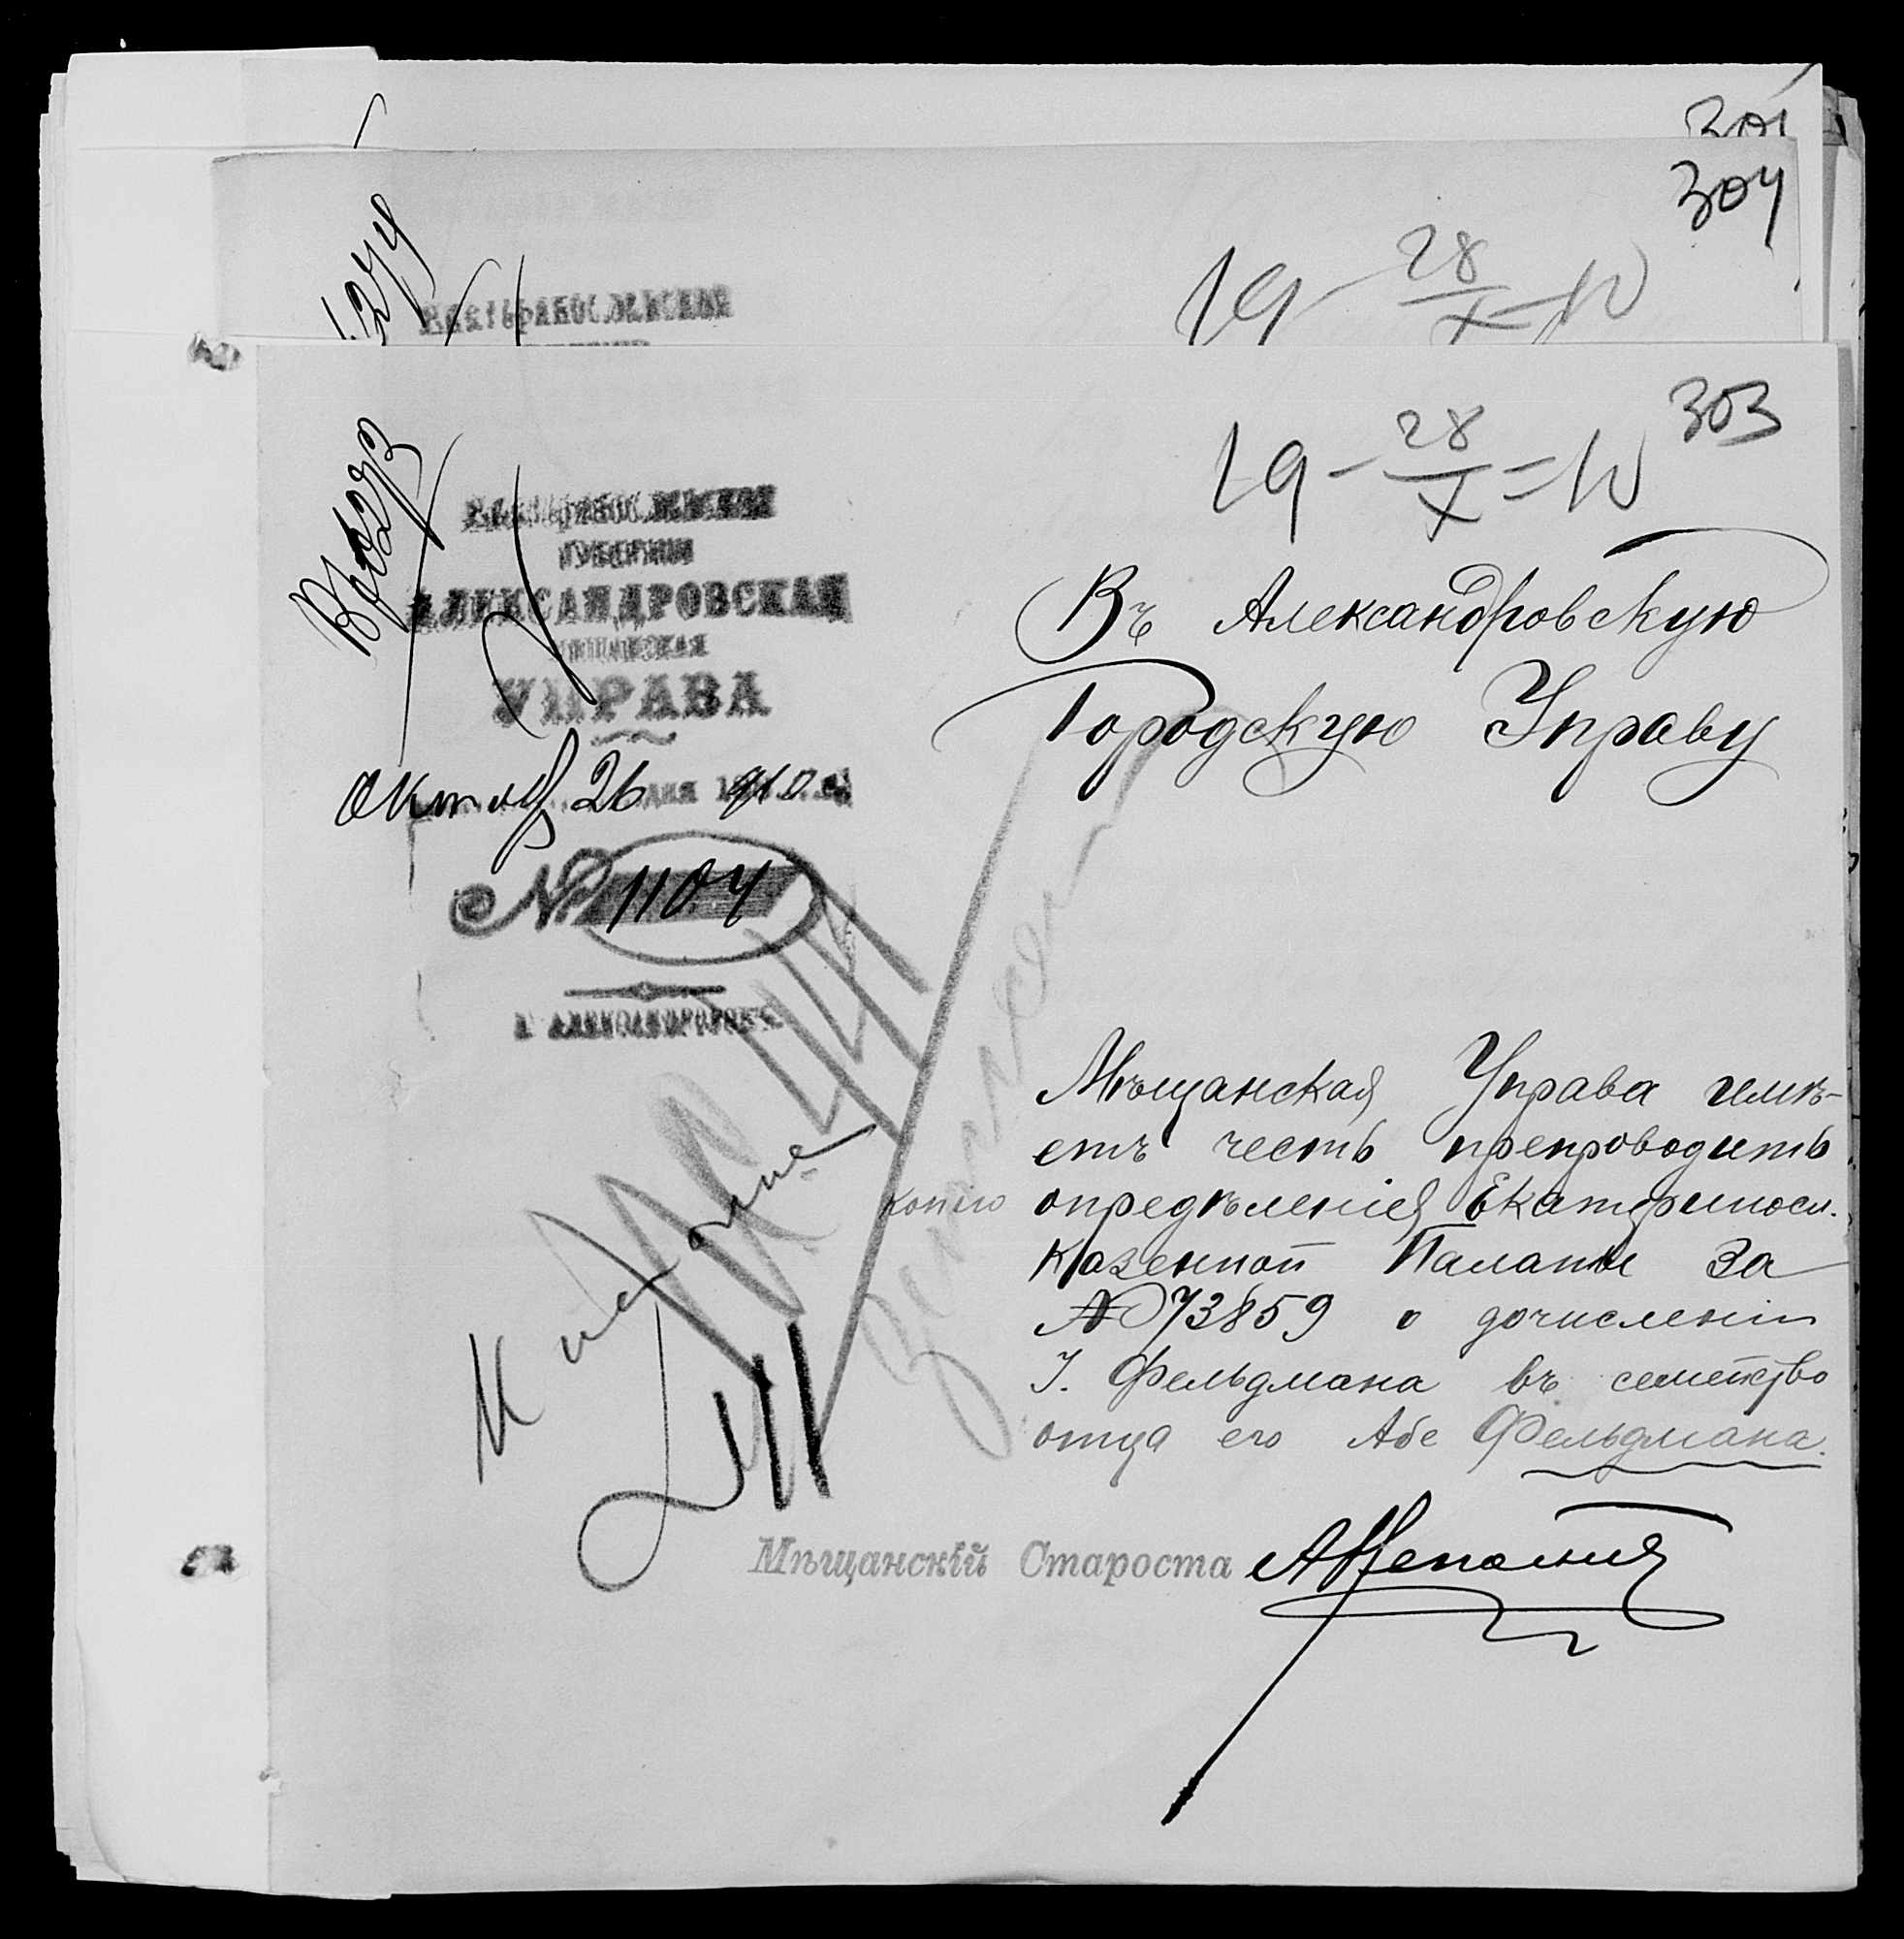 301
304
19 28/X 10
Екатеринославской
303
19 - 28/X = 10
Екатеринославской
губернии
АЛЕКСАНДРОВСКАЯ
мѣщанская
УПРАВА
Октяб 26 дня 1910 г.
№ 1104
г. Александровскъ
Въ Александровскую
Городскую Управу
Мѣщанская Управа имѣ-
етъ честь препроводить
копію опредѣленія Екатериносл.
Казенной Палаты за
№ 73859 о дочисленіи
І. Фельдмана въ семейство
отца его Абе Фельдмана.
Мѣщанскій Староста